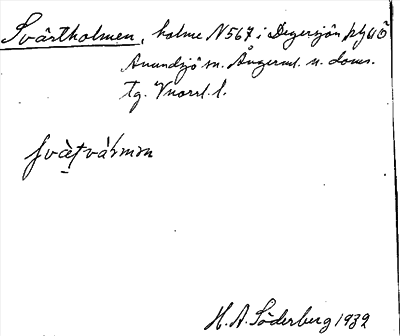 Svärtholmen, holme N 567 i Degersjön på UÖ
Anundsjö sn. Ångerml. n. doms.
tg. Vnorrl. l.
H. A. Söderberg 1932